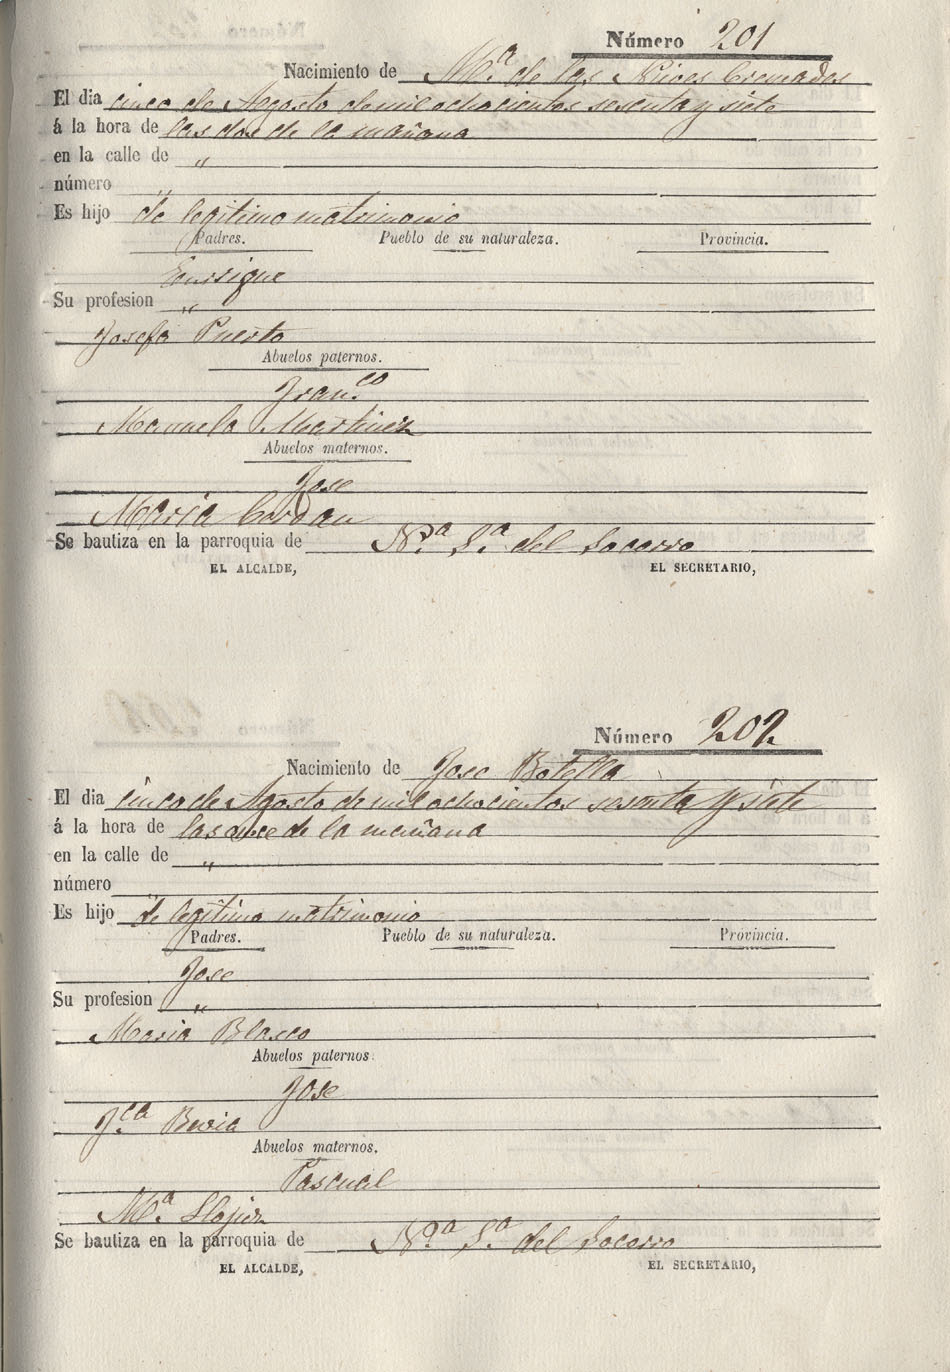 Número 201
Nacimiento de Mª de las Nieves Cremades
El dia cinco de Agosto de mil ochocientos sesenta y siete
á la hora de las dos de la mañana
en la calle de "
número "
Es hijo de legitimo matrimonio
Padres. Pueblo de su naturaleza. Provincia.
Enrrique
Su profesion "
Josefa Puerto
Abuelos paternos.
Franco
Manuela Martinez
Abuelos maternos.
Jose
Maria
Se bautiza en la parroquia de Nª Sª del Socorro
EL ALCALDE, EL SECRETARIO,
Número 202
Nacimiento de Jose Botella
El dia cinco de Agosto de mil ochocientos sesenta y siete
á la hora de las once de la mañana
en la calle de "
número
Es hijo de legitimo matrimonio
Padres. Pueblo de su naturaleza. Provincia.
Jose
Su profesion "
Maria Blasco
Abuelos paternos.
Jose
Fca
Abuelos maternos.
Pascual
Mª
Se bautiza en la parroquia de Nª Sª del Socorro
EL ALCALDE, EL SECRETARIO,